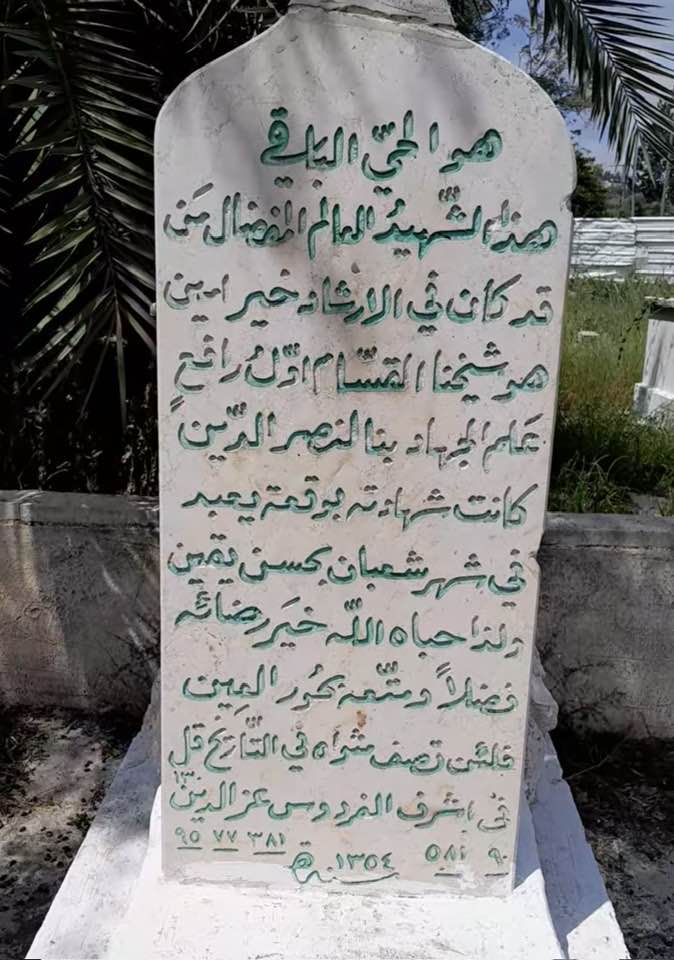 هو الحيّ الباقي
هذا الشّهيدُ العالم المفضال مَن
قد كان في الارشاد خير امين
هو شيخنا القسّام اوّلُ رافعٍ
عَلم الجهاد بنا لنصر الدّين
كانت شهادته بوقعة يعبد
في شهر شعبان بحسن يقين
ولذا حباه اللّه خيَر رضائه
فضلاً ومتّعه بحُور العِين
فلئن تصف مثواه في التّاريخ قل
١٣٠
في اشرف الفردوس عز الدين
٩٠ ٥٨١ ٣٨١ ٧٧ ٩٥
سنة ١٣٥٤ هـ